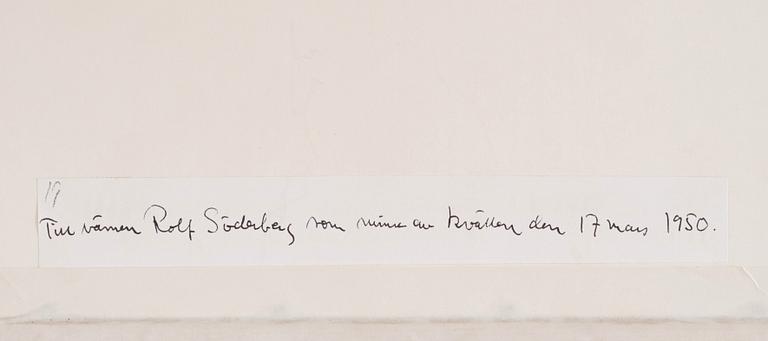 19
Till vännen Rolf Söderberg som minne av kvällen den 17 mars 1950.